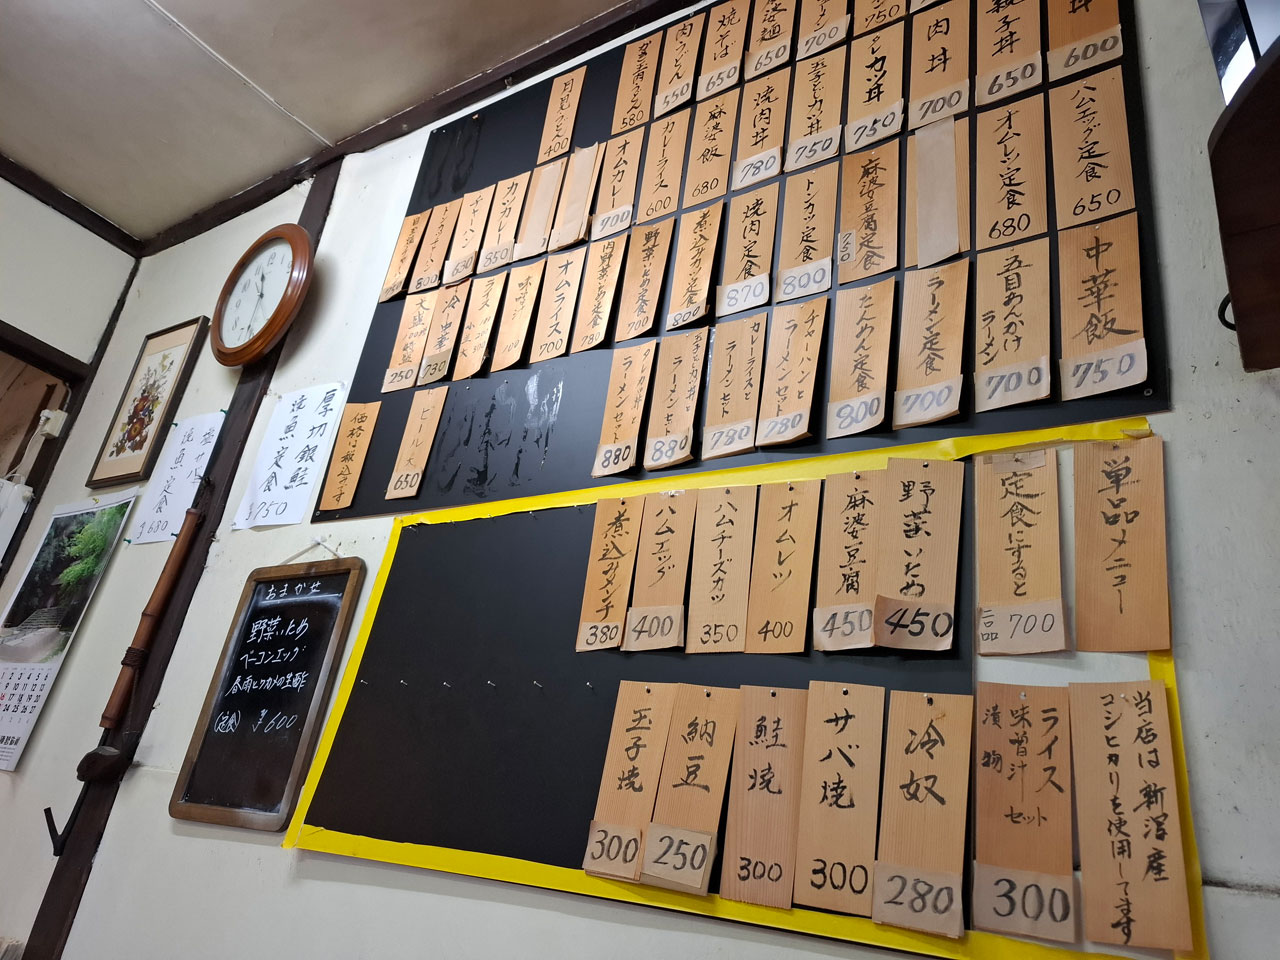 丼
600
親子丼
650
肉丼
700
カツ丼
750
玉子とじカツ丼
750
焼肉丼
780
麻婆飯
680
カレーライス
600
オムカレー
700
カツカレー
850
チャーハン
630
750
ラーメン
700
麻婆麺
650
焼そば
650
肉うどん
550
580
月見うどん
400
ハムエッグ定食
650
オムレツ定食
680
麻婆豆腐定食
750
トンカツ定食
800
焼肉定食
870
煮込みカツ定食
800
野菜いため定食
700
肉野菜いため定食
780
オムライス
700
味噌汁
100
ライス
冷し中華
730
大盛
250
中華飯
750
五目あんかけラーメン
700
ラーメン定食
700
たんめん定食
800
チャーハンと
ラーメンセット
780
カレーライスと
ラーメンセット
780
ラーメンセット
880
ラーメンセット
880
ビール 大
650
価格は税込みです
単品メニュー
定食にすると
二品 700
野菜いため
450
麻婆豆腐
450
オムレツ
400
ハムチーズカツ
350
ハムエッグ
400
煮込みメンチ
380
当店は新潟産
コシヒカリを使用してます
ライス
味噌汁
漬物
セット
300
冷奴
280
サバ焼
300
鮭焼
300
納豆
250
玉子焼
300
厚切銀鮭
焼魚定食
¥750
焼魚定食
¥680
おまかせ
野菜いため
ベーコンエッグ
春雨とワカメの生酢
(定食) ¥600